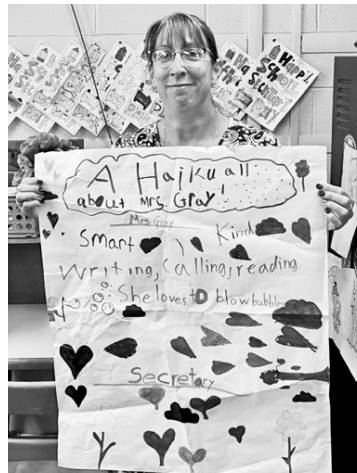 A Haiku all
about Mrs. Gray!
Mrs Gray
Smart , Kind
Writing, Calling, reading
She loves to blow bubbles
Secretary